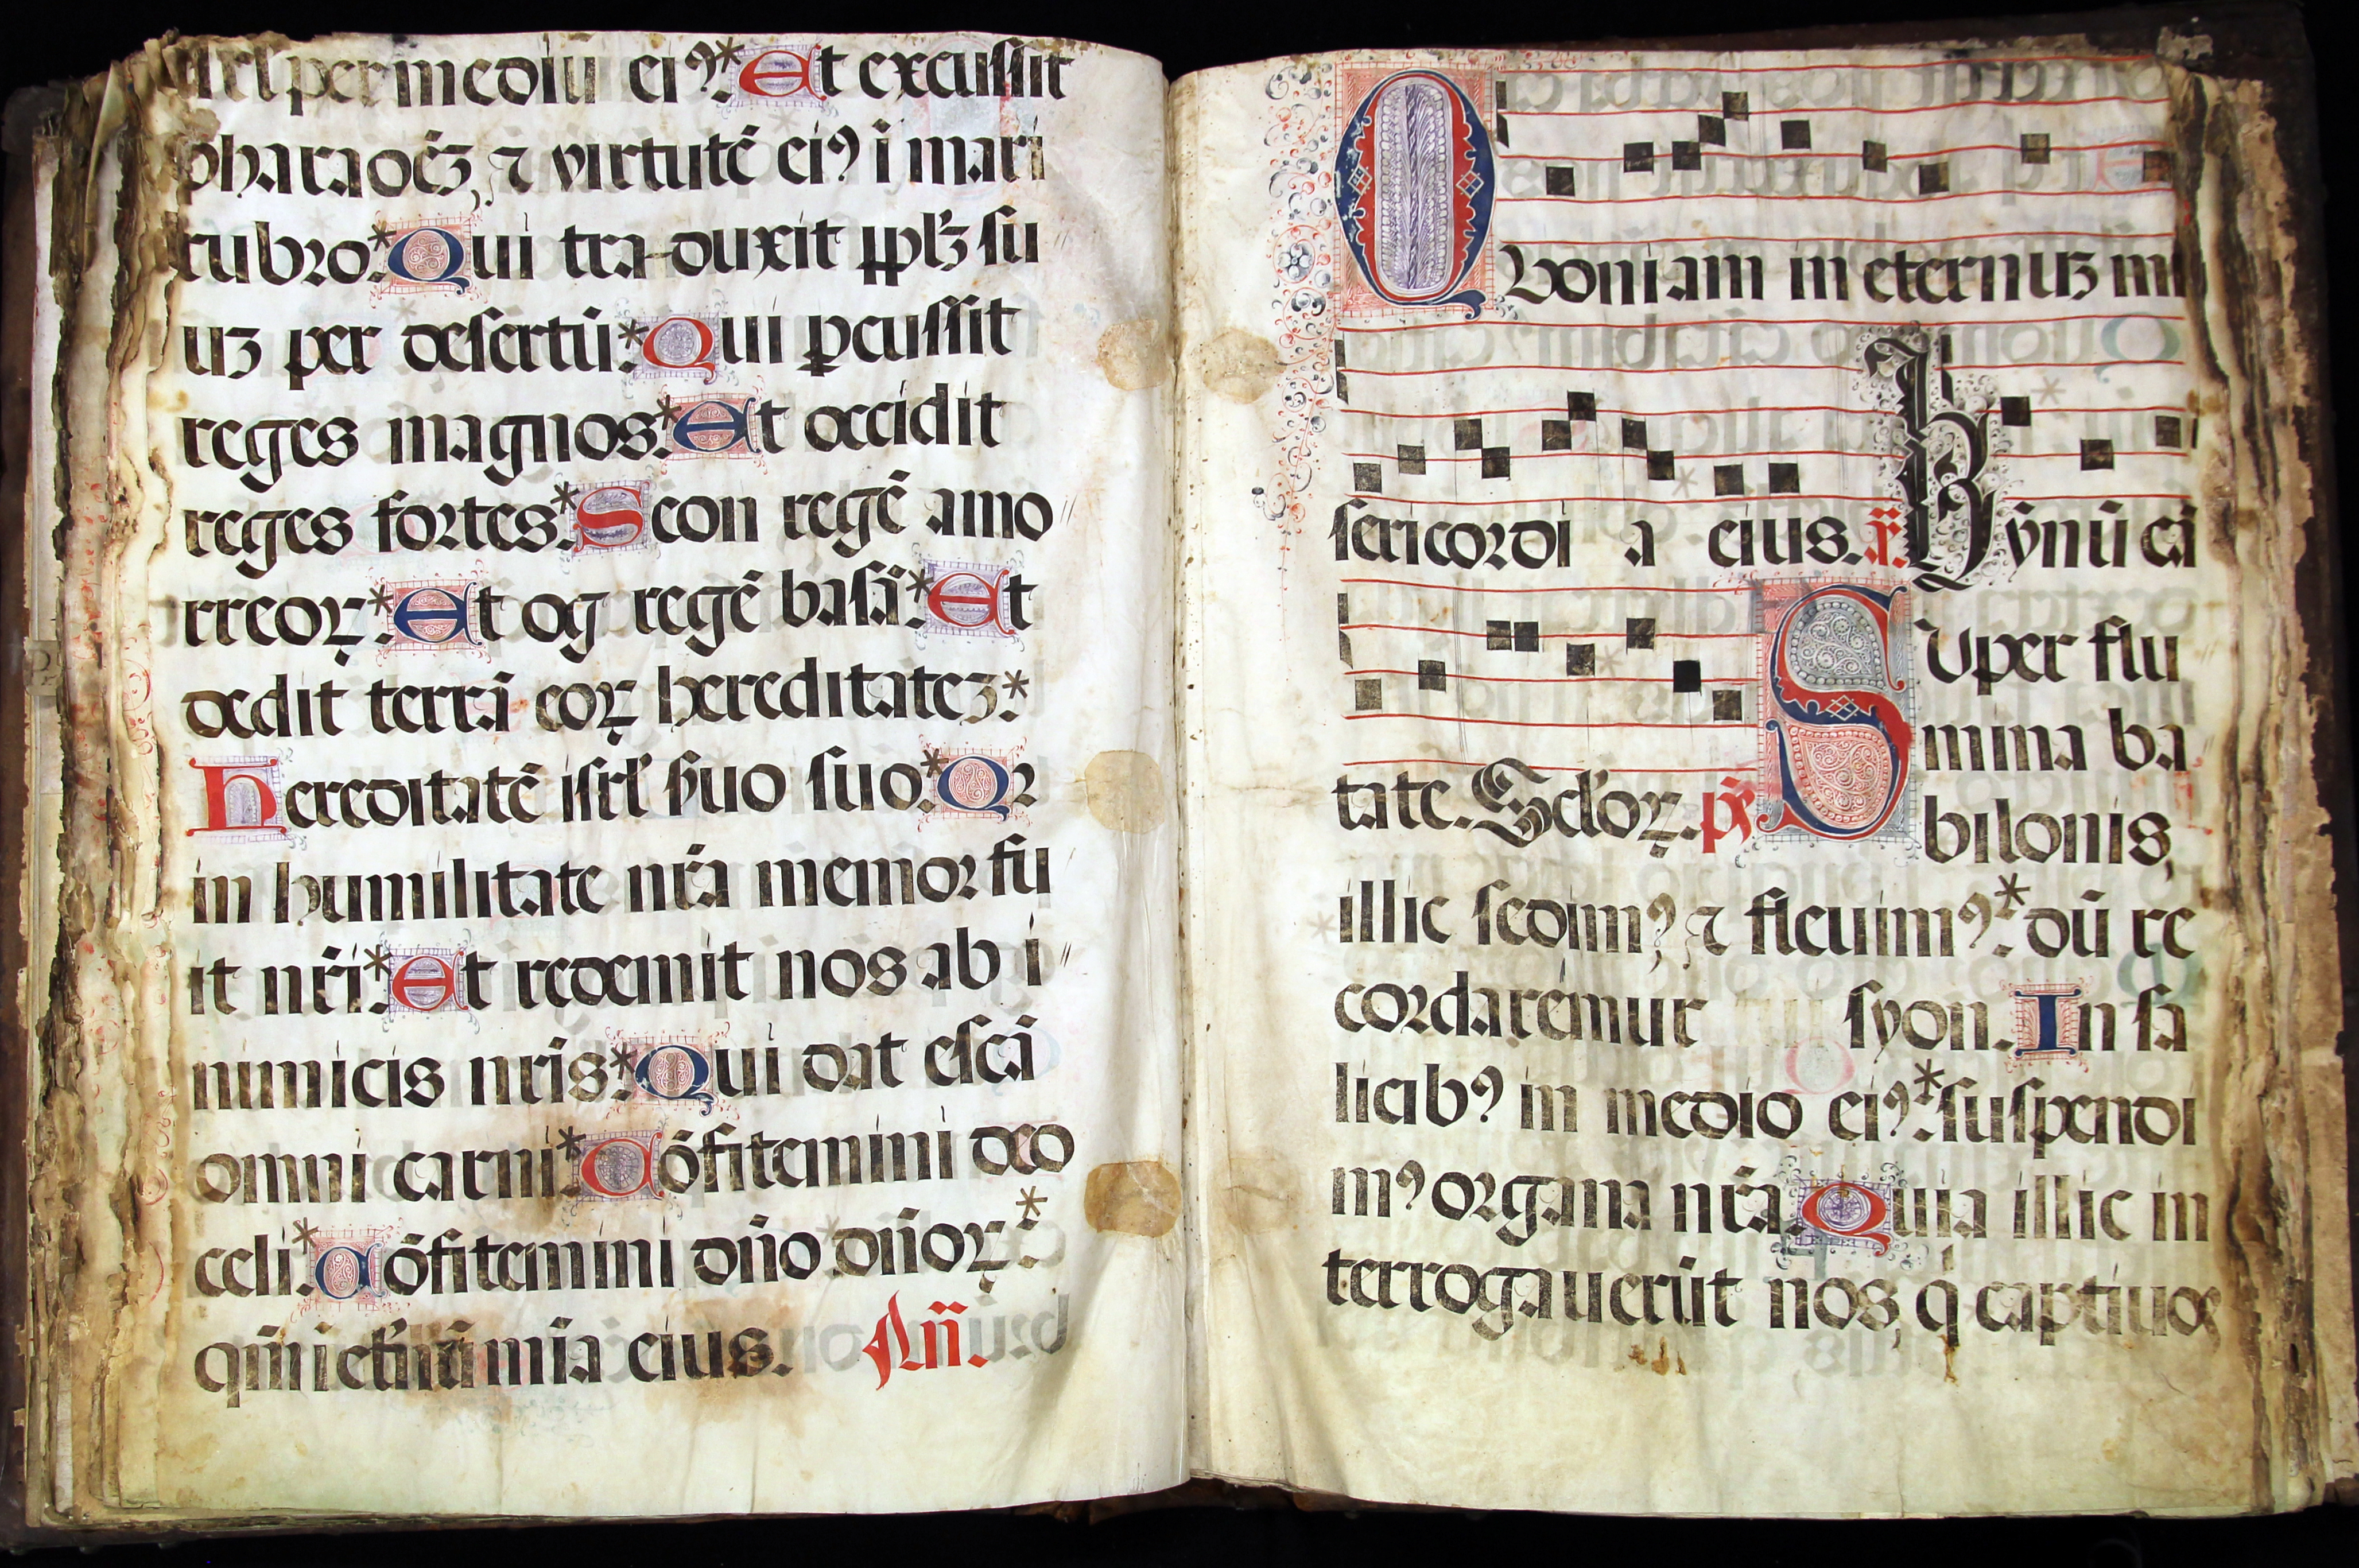 isrl per mediū eiꝰ * Et excussit
pharaonē, ⁊ virtutē eiꝰ ī mari
rubro * Qui tra-duxit ppl̄ꝫ su
uꝫ per desertū * Qui ꝑcussit
reges magnos * Et occidit
reges fortes * Seon regē amo
rreoꝝ * Et og regē basā * Et
dedit terrā eoꝝ hereditateꝫ *
Hereditatē isrl̄ s̄uo suo * Qꝛ
in humilitate nr̄a memor fu
it nr̄i * Et redemit nos ab i
nimicis nr̄is * Qui dat escā
omni carni * Cōfitemini deo
celi * Cōfitemini dn̄o dn̄oꝝ *
qm̄ i et̄nū mīa eius. An̄.
Quoniam in eternuꝫ mi
sericordi a eius. v̄. Hȳnū cā
tate. Sc̄doꝝ. pꝭ̄ Super flu
mina ba
bilonis,
illic sedimꝰ, ⁊ fleuimꝰ * dū re
cordaremur syon. In sa
licibꝰ in medio eiꝰ * suspendi
mꝰ organa nr̄a. Quia illic in
terrogauerūt nos, q̇ captiuos